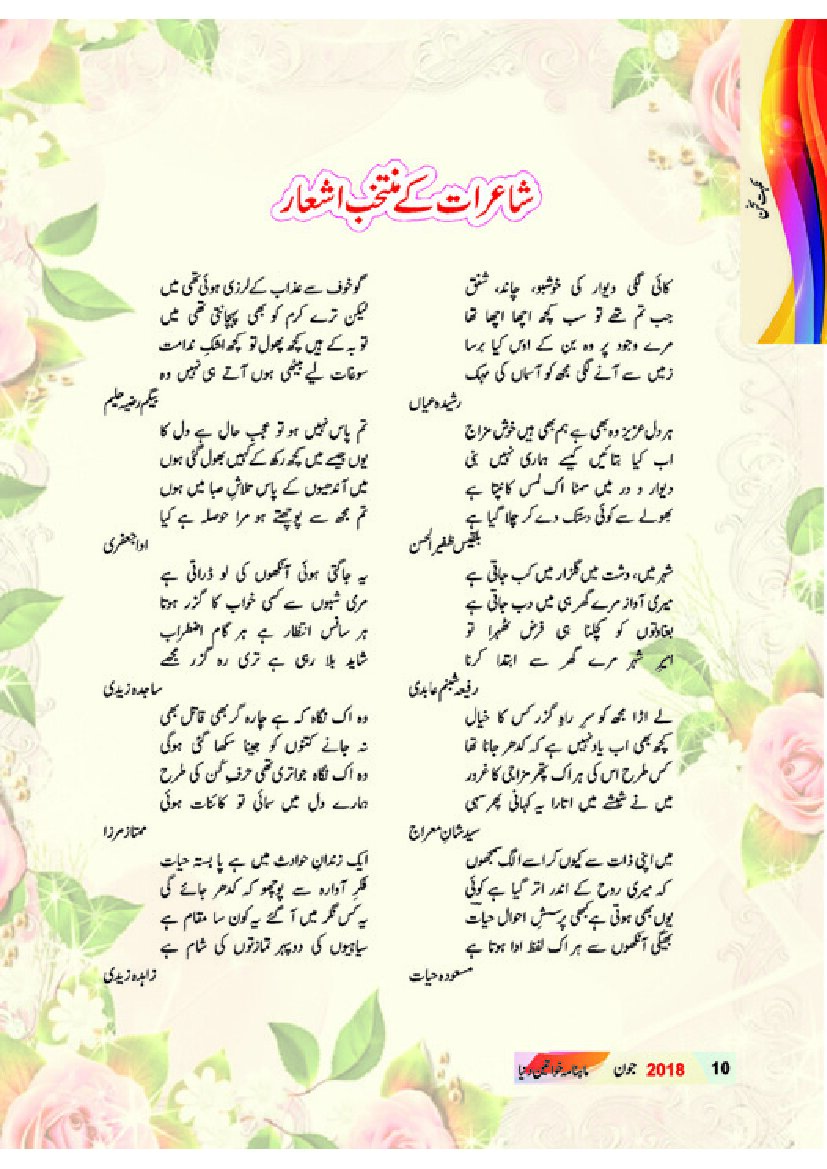 نکہت سخن
شاعرات کے منتخب اشعار
کائی لگی دیوار کی خوشبو، چاند، شفق
جب تم تھے تو سب کچھ اچھا اچھا تھا
مرے وجود پر وہ بن کے اوس کیا برسا
زمیں سے آنے لگی مجھ کو آسماں کی مہک
رشیدہ عیاں
ہر دل عزیز وہ بھی ہے ہم بھی ہیں خوش مزاج
اب کیا بتائیں کیسے ہماری نہیں بنی
دیوار و در میں سمٹا اک لمس کانپتا ہے
بھولے سے کوئی دستک دے کر چلا گیا ہے
بلقیس ظفیر الحسن
شہر میں، دشت میں گلزار میں کب جاتی ہے
میری آواز مرے گھر ہی میں دب جاتی ہے
بغاوتوں کو کچلنا ہی فرض ٹھہرا تو
امیرِ شہر مرے گھر سے ابتدا کرنا
رفیعہ شبنم عابدی
لے اڑا مجھ کو سرِ راہ گزر کس کا خیال
کچھ بھی اب یاد نہیں ہے کہ کدھر جانا تھا
کس طرح اس کی ہر اک پتھر مزاجی کا غرور
میں نے شیشے میں اتارا یہ کہانی پھر سہی
سید شانِ معراج
میں اپنی ذات سے کیوں کر اسے الگ سمجھوں
کہ میری روح کے اندر اتر گیا ہے کوئی
یوں بھی ہوتی ہے کبھی پرسشِ احوال حیات
بھیگی آنکھوں سے ہر اک لفظ ادا ہوتا ہے
مسعودہ حیات
گو خوف سے عذاب کے لرزی ہوئی تھی میں
لیکن ترے کرم کو بھی پہچانتی تھی میں
توبہ کے ہیں کچھ پھول تو کچھ اشکِ ندامت
سوغات لیے بیٹھی ہوں آتے ہی نہیں وہ
بیگم رضیہ حلیم
تم پاس نہیں ہو تو عجب حال ہے دل کا
یوں جیسے میں کچھ رکھ کے کہیں بھول گئی ہوں
میں آندھیوں کے پاس تلاشِ صبا میں ہوں
تم مجھ سے پوچھتے ہو مرا حوصلہ ہے کیا
ادا جعفری
یہ جاگتی ہوئی آنکھوں کی لو ڈراتی ہے
مری شبوں سے کسی خواب کا گزر ہوتا
ہر سانس انتظار ہے ہر گام اضطراب
شاید بلا رہی ہے تری رہ گزر مجھے
ساجدہ زیدی
وہ اک نگاہ کہ ہے چارہ گر بھی قاتل بھی
نہ جانے کتنوں کو جینا سکھا گئی ہوگی
وہ اک نگاہ جو اتری تھی حرفِ کن کی طرح
ہمارے دل میں سمائی تو کائنات ہوئی
ممتاز مرزا
ایک زندانِ حوادث میں ہے پا بستہ حیات
فکرِ آوارہ سے پوچھو کہ کدھر جائے گی
یہ کس نگر میں آ گئے یہ کون سا مقام ہے
سیاہیوں کی دوپہر تمازتوں کی شام ہے
زاہدہ زیدی
ماہنامہ خواتین دنیا جون 2018 10